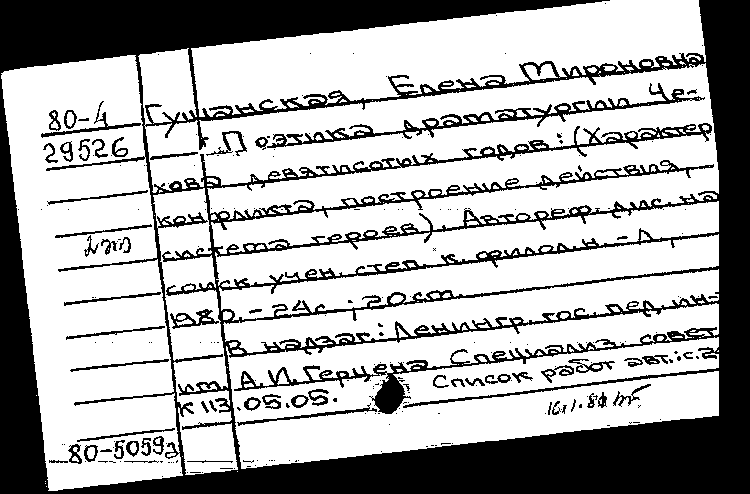 80-4 Гушанская, Елена Мироновна
29526 Поэтика драматургии Че-
хова девятисотых годов: (Характер
конфликта, построение действия,
2эт система героев). Автореф. дис. на
соиск. учен. степ. к. филол. н. - Л.,
1980. - 24с.; 20см.
В надзаг.: Ленингр. гос. пед. ин-т
им. А.И. Герцена. Специализ. совет
К 113.05.05. Список работ авт.: с. 24
80-5059а